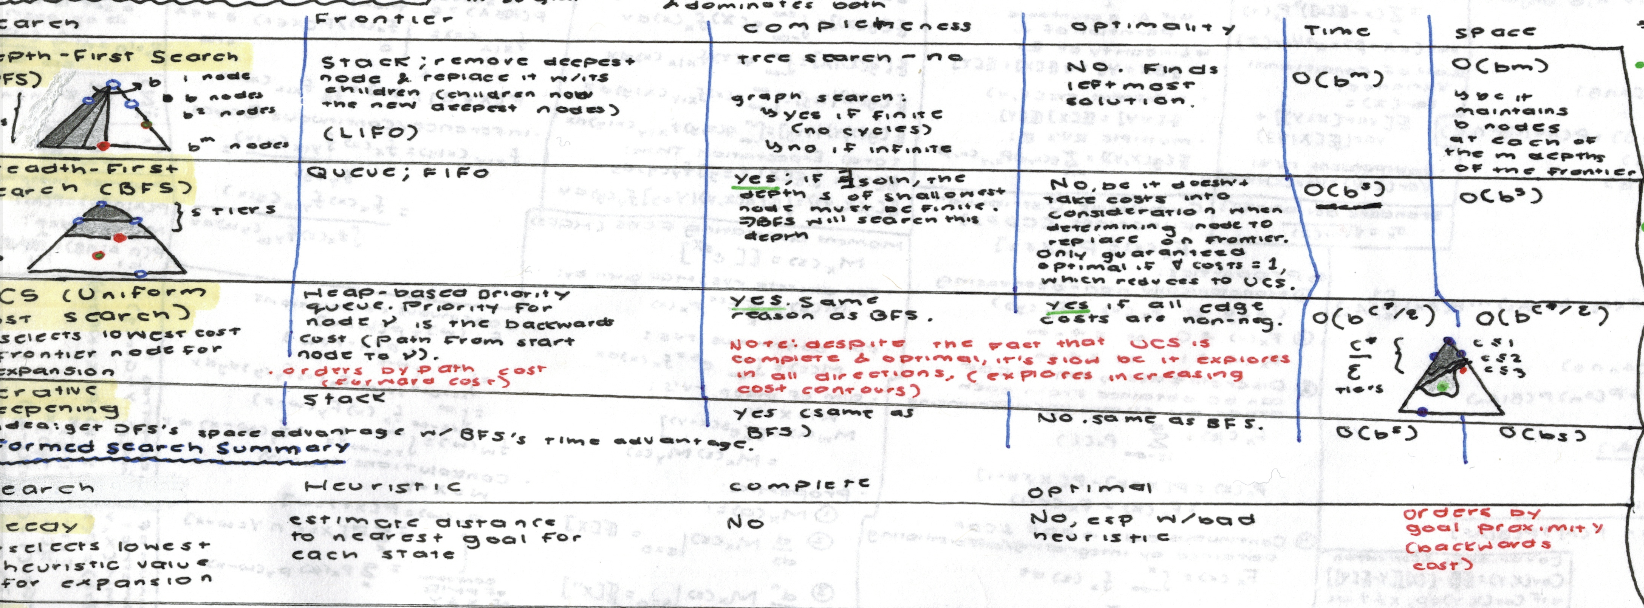 A dominates both
earch Frontier completeness optimality Time space
epth-First Search
FS)
b 1 node
b nodes
b² nodes
b^m nodes
Stack; remove deepest
node & replace it w/its
children (children now
the new deepest nodes)
(LIFO)
tree search - no
graph search:
↳yes if finite
(no cycles)
↳no if infinite
No. Finds
leftmost
solution.
O(b^m)
O(bm)
↳bc it
maintains
b nodes
at each of
the m depths
of the frontier
eadth-First
earch (BFS)
} s tiers
Queue; FIFO
yes; if ∃soln, the
depth s of shallowest
node must be finite
⇒BFS will search this
depth
No, bc it doesn't
take costs into
consideration when
determining node to
replace on frontier.
Only guaranteed
optimal if ∀ costs=1,
which reduces to UCS.
O(b^s)
O(b^s)
CS (Uniform
ost search)
selects lowest cost
frontier node for
expansion
Heap-based priority
queue. Priority for
node v is the backwards
cost (path from start
node to v).
. orders by path cost
(forward cost)
yes. Same
reason as BFS.
Note: despite the fact that UCS is
complete & optimal, it's slow bc it explores
in all directions, (explores increasing
cost contours)
yes if all edge
costs are non-neg.
O(b^(C*/ε))
O(b^(C*/ε))
C*
ε
tiers
c≤1
c≤2
c≤3
erative
eepening
idea: get DFS's space advantage w/ BFS's time advantage.
Stack
yes (same as
BFS)
No. same as BFS.
O(b^s)
O(bs)
formed search Summary
earch Heuristic complete optimal
eedy
selects lowest
heuristic value
for expansion
estimate distance
to nearest goal for
each state
No
No, esp w/bad
heuristic
orders by
goal proximity
(backwards
cost)